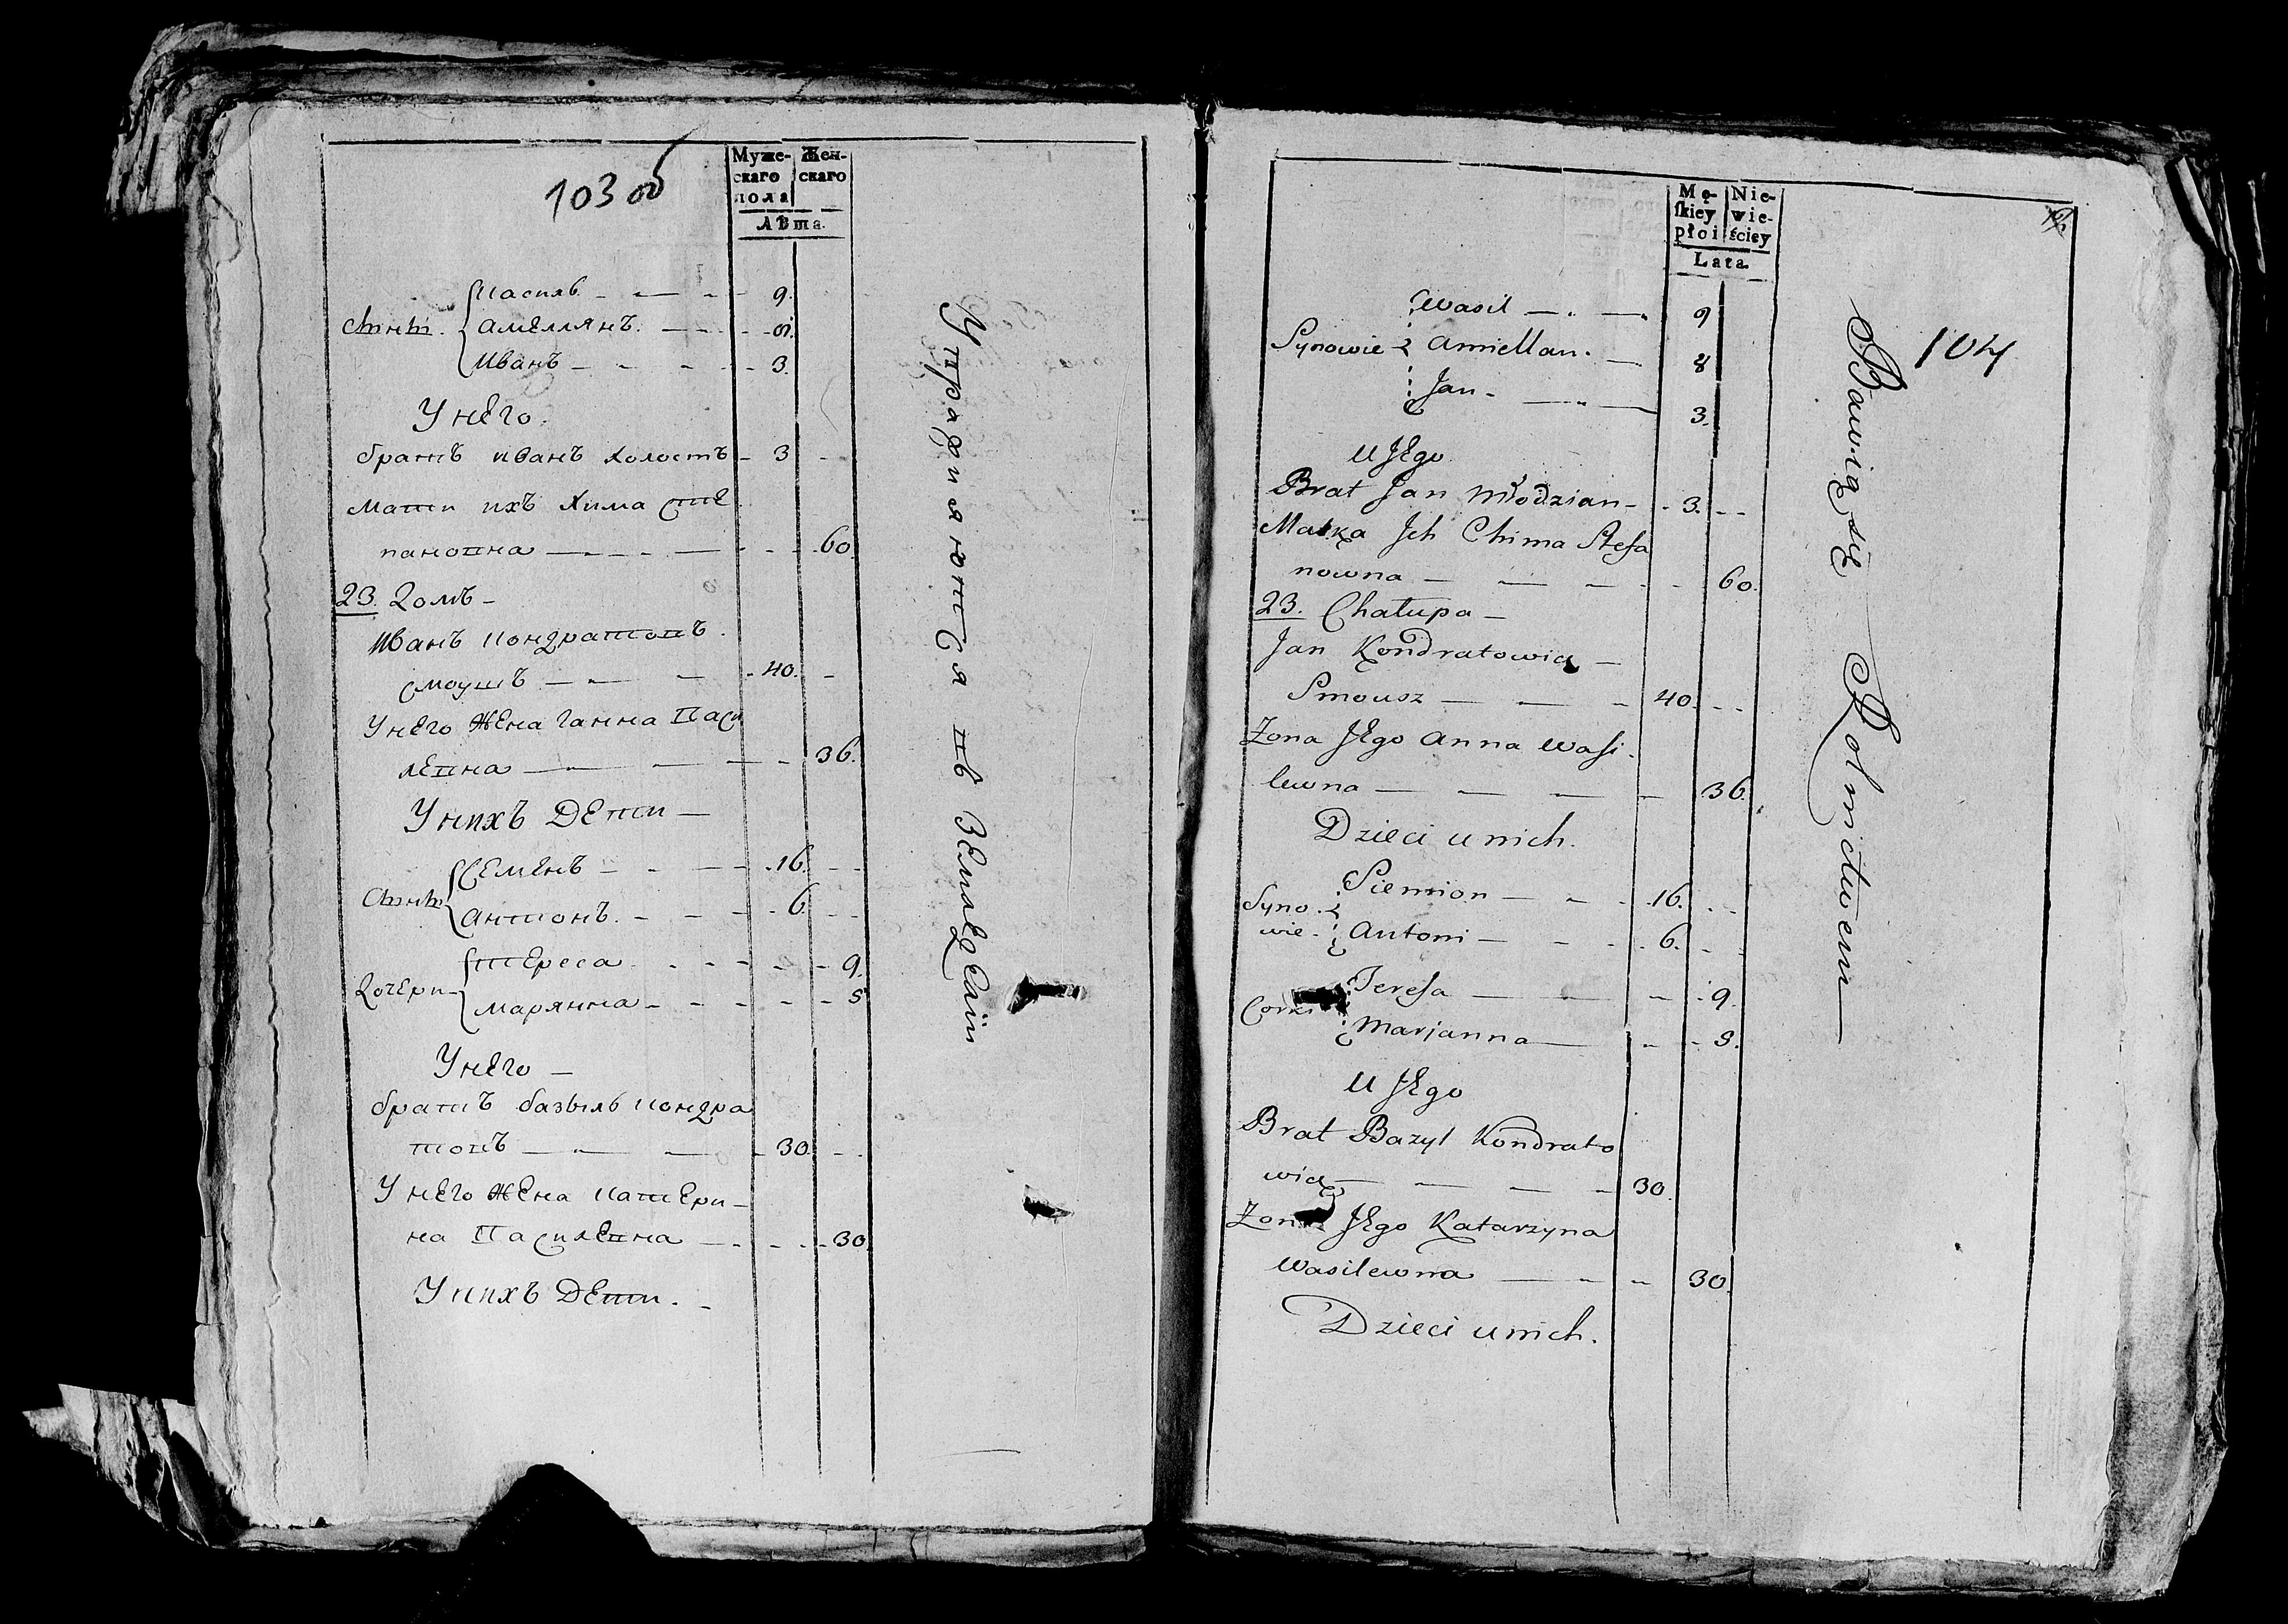 103 об
Муже-
скаго
пола
Жен-
скаго
Лѣта.
Василь 9.
Сыны. Амеллянъ. 8.
Иванъ 3.
У него.
братъ иванъ холостъ 3
Мати ихъ Хима Сте
пановна 60.
23. Домъ
Иванъ Кондратовъ.
Смоушъ 40.
У него жена Ганна Васи
левна 36.
У нихъ Дети
Семенъ 16.
Сыны Антонъ. 6.
Тереса 9.
Дочери Марянна
У него
братъ базыль Кондра
товъ 30.
У него жена Катери-
на Василевна 30.
У нихъ Дети.
Упражняются въ
Mę-
skiey
płoi
Nie-
wie-
ściey
Lata.
104
Wasil 9
Synowie Amiellan. 8
Jan 3.
U Jego
Brat Jan Młodzian 3.
Matka Jch Chima Stefa
nowna 60.
23. Chałupa
Jan Kondratowicz
Smousz 40.
Zona Jego Anna Wasi
lewna 36.
Dzieci u nich.
Siemion 16.
Syno
wie Antoni 6.
Teresa 9.
Corki Marjanna
U Jego
Brat Bazyl Kondrato
wicz 30.
Zona Jego Katarzyna
Wasilewna 30.
Dzieci u nich.
Bawią się Rolnictwem